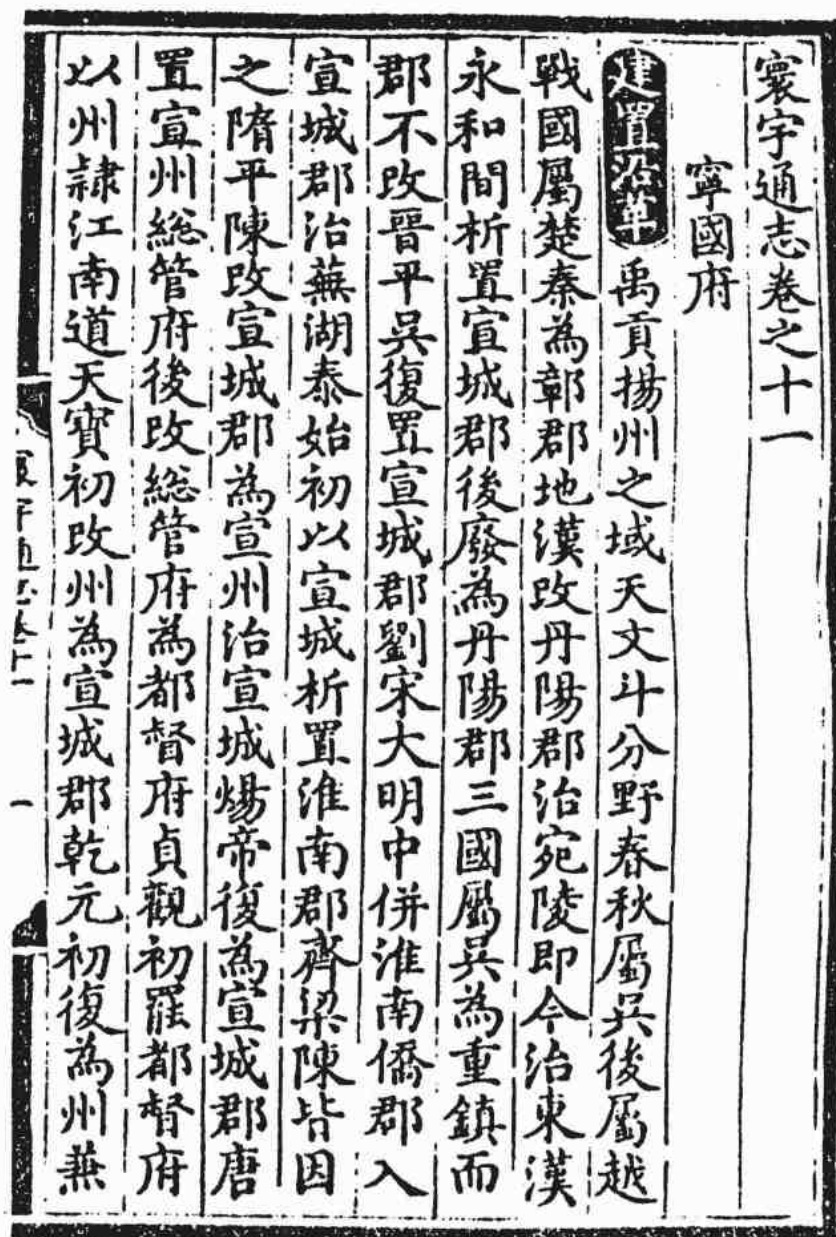 寰宇通志卷之十一
寧國府
建置沿革 禹貢揚州之域天文斗分野春秋屬吳後屬越
戰國屬楚秦為鄣郡地漢改丹陽郡治宛陵即今治東漢
永和間析置宣城郡後廢為丹陽郡三國屬吳為重鎮而
郡不改晉平吳復置宣城郡劉宋大明中併淮南僑郡入
宣城郡治蕪湖泰始初以宣城析置淮南郡齊梁陳皆因
之隋平陳改宣城郡為宣州治宣城煬帝復為宣城郡唐
置宣州緫管府後改緫管府為都督府貞觀初罷都督府
以州隷江南道天寳初改州為宣城郡乾元初復為州兼
寰宇通志卷十一
一